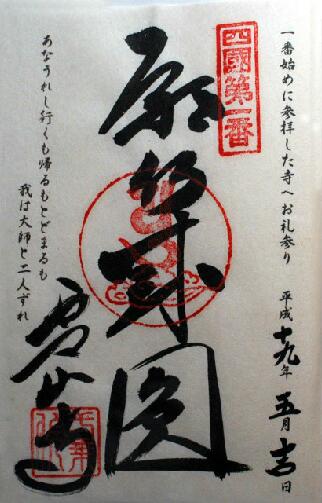 四國第一番
一番始めに参拝した寺へお礼参り
平成十九年五月吉日
願行成圓
あなうれし行くも帰るもとどまるも
我は大師と二人ずれ
霊山寺